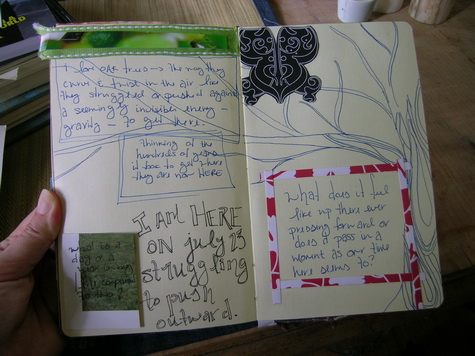 I love OAK trees — the way they
curve & twist in the air like
they struggled or pushed against
a seemingly invisible energy
gravity — to get there.
Thinking of the
hundreds of years
it took to get where
they are now HERE
I AM HERE
ON july 23
struggling
to push
outward.
What does it feel
like up there ever
pressing forward or
does it pass in a
moment as our time
here seems to?